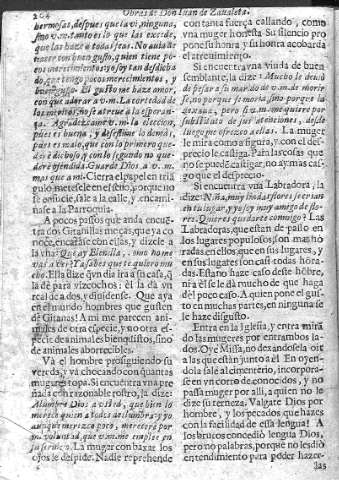 204 Obras de Don Iuan de Zaualeta.
hermosas, despues que la vi, ninguna,
sino v.m. tanto es lo que las excede,
que las haze a todas feas. No aula de
tener con buen gusto, quien tiene po-
cos merecimientos: yo soy tan desdicha
do, que tengo pocos merecimientos, y
buen gusto. El gusto me haze amor,
con que adorar a v.m. La cortedad de
los meritos, no se atreue a la espera-
ça. Agradezcame v.m. la eleccion,
pues es buena; y desestime lo demàs,
pues es malo, que con lo primero que-
darè dichoso, y con lo segundo no que-
darè ofendido. Guarde Dios a v. m.
mas que a mi. Cierra el papel en tria
gulo, metesele en el seno, porque no
se ensucie, sale a la calle, y encami-
nase a la Parroquia.
A pocos passos que anda encuẽ
tra dos Gitanillas moças, que ya co
noce, encarase con ellas, y dizele a
la vna: Que ay Blensilla, como no me
vas a ver? Ya sabes que te quiero mu
cho. Ella dize q̃ vn dia ira a su casa, q̃
la dè para vizcochos: èl la dà vn
real de a dos, y diuidense. Que aya
en el mundo hombres que gusten
de Gitanas! A mi me parecen ani-
males de otra especie, y no otra es-
pecie de animales bienquistos, sino
de animales aborrecibles.
Và el hombre prosiguiendo su
vereda, y và chocando con quantas
mugeres topa. Si encuentra vna pre
ñada con razonable rostro, la dize:
Alumbre Dios a vsted, que bien lo
merece quien a todos nos alumbra: y yo
aunque merezca poco, merecerè por
mi voluntad, que v.m. me emplee en
su seruicio. La muger con baxar los
ojos le despide. Nadie reprehende
con tanta fuerça callando, como
vna muger honesta. Su silencio pro
pone su honra y su honra acobarda
el atreuimiento.
Si encuentra vna viuda de buen
semblante, la dize: Mucho le deuiò
de pesar a su marido de v. m. de morir
se, no porque se moria, sino porque la
dexaua; pero si v. m. me quiere por
substituto de sus atenciones, desde
luego me ofrezco a ellas. La muger
le mira como a figura, y con el des-
precio le castiga. Para las cosas que
no se puede castigar, no ay mas cas-
go que el desprecio.
Si encuentra vna Labradora, la
dize: Niña, muy lindas flores se crian
en tu lugar, y yo soy muy amigo de flo-
res. Quieres quedarte conmigo? Las
Labradoras, que estàn de passo en
los lugares populosos, son mas hõ
radas en ellos, que en sus lugares, y
en sus lugares son casi todas honra
das. Esta no haze caso deste hõbre,
ni a èl se le dà mucho de que haga
del poco caso. A quien pone el gus-
to en muchas partes, en ninguna se
le haze disgusto.
Entra en la Iglesia, y entra mirã
do las mugeres por entrambos la-
dos. Oye Missa, no dexandola oir
a las que estàn junto a èl. En oyen-
dola sale al cimenterio, incorpora-
se en vn corro de conocidos, y no
passa muger por alli, a quien no le
dize su terneza. Valgate Dios por
hombre, y los pecados que hazes
con la facilidad de essa lengua! A
los brutos concediò lengua Dios,
pero no palabras, porque no les diò
entendimiento para poder hazer-
las